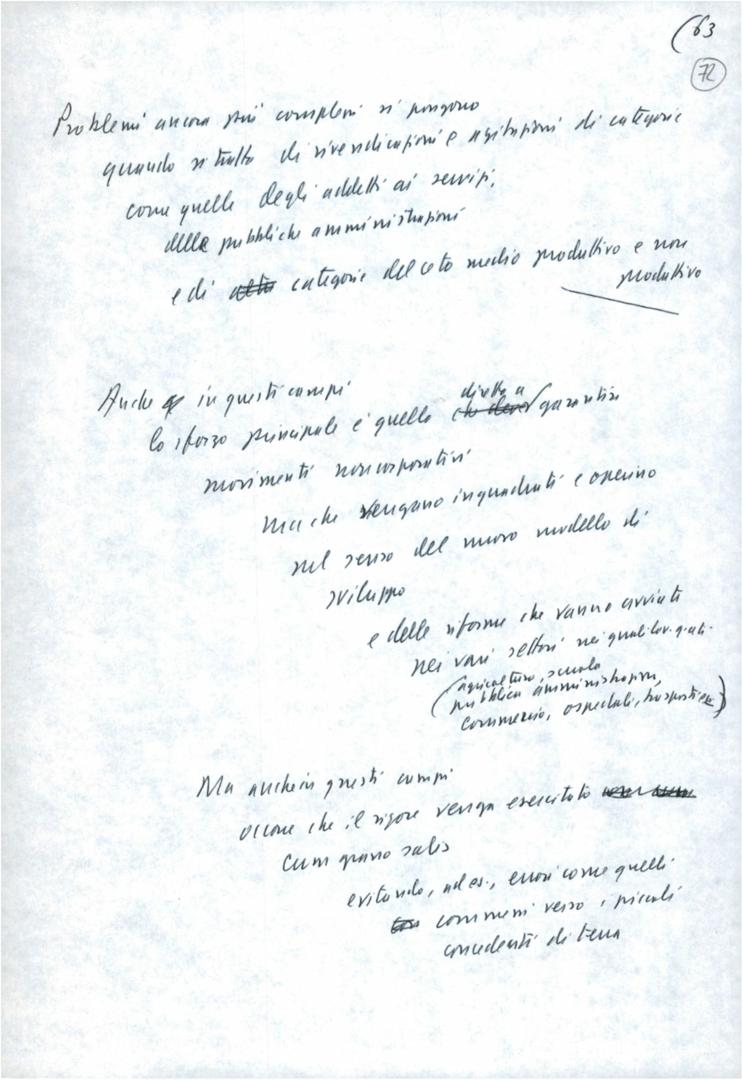 (63
72
Problemi ancora più complessi si pongono
quando si tratta di rivendicazioni e agitazioni di categorie
come quelle degli addetti ai servizi,
delle pubbliche amministrazioni
e di altre categorie del ceto medio produttivo e non
produttivo
Anche in questi campi
diretto a
lo sforzo principale è quello che deve garantire
movimenti non corporativi
ma che vengano inquadrati e operino
nel senso del nuovo modello di
sviluppo
e delle riforme che vanno avviati
nei vari settori nei quali
(agricoltura, scuola
pubblica amministrazione,
commercio, ospedali, trasporti ecc)
Ma anche in questi campi
occorre che il rigore venga esercitato
cum grano salis
evitando, ad es., errori come quelli
commessi verso i piccoli
concedenti di terra